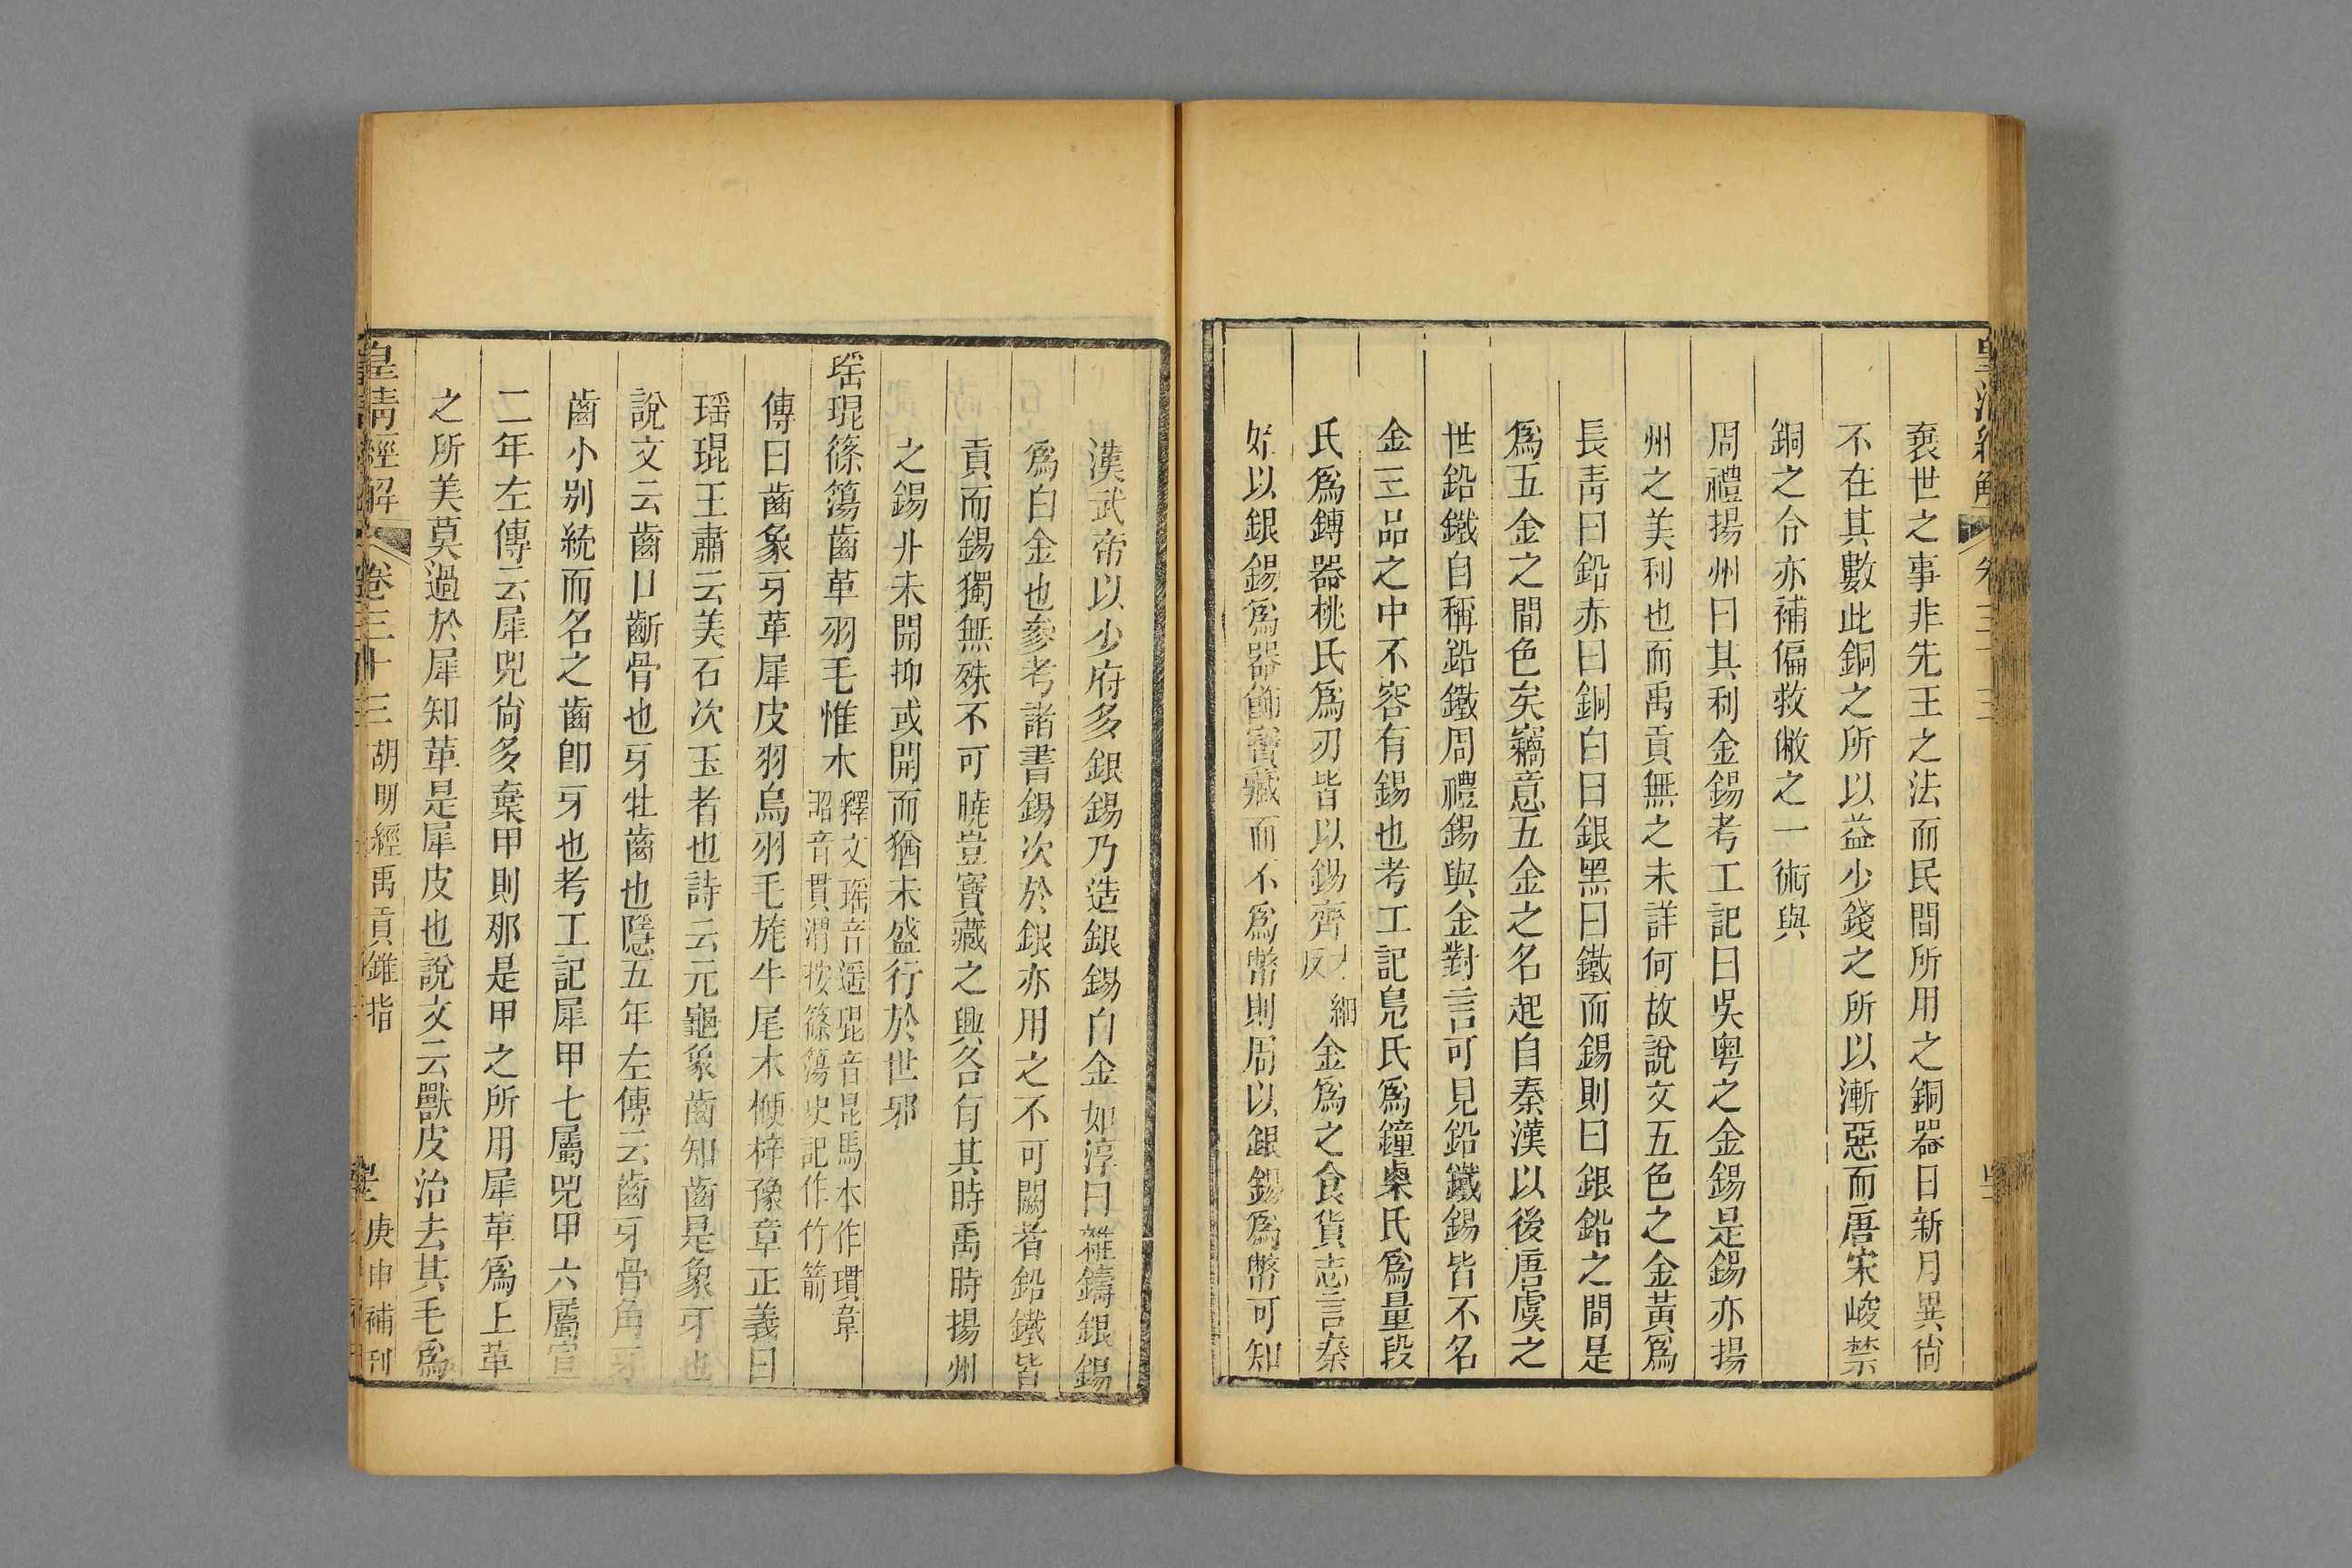 衰世之事非先王之法而民間所用之銅器日新月異尙
不在其數此銅之所以益少錢之所以漸惡而唐宋峻禁
銅之令亦補偏救敝之一術與
周禮揚州曰其利金錫考工記曰吳粤之金錫是錫亦揚
州之美利也而禹貢無之未詳何故說文五色之金黃爲
長靑曰鉛赤曰銅白曰銀黑曰鐵而錫則曰銀鉛之間是
爲五金之間色矣竊意五金之名起自秦漢以後唐虞之
世鉛鐵自稱鉛鐵周禮錫與金對言可見鉛鐵錫皆不名
金三品之中不容有錫也考工記鳧氏爲鐘㮚氏爲量段
氏爲鎛器桃氏爲刃皆以錫齊才細反金爲之食貨志言秦
始以銀錫爲器飾寶藏而不爲幣則周以銀錫爲幣可知
漢武帝以少府多銀錫乃造銀錫白金如淳曰雜鑄銀錫
爲白金也參考諸書錫次於銀亦用之不可闕者鉛鐵皆
貢而錫獨無殊不可曉豈寶藏之興各有其時禹時揚州
之錫丱未開抑或開而猶未盛行於世邪
瑤琨篠簜齒革羽毛惟木釋文瑤音遥琨音昆馬本作瑻韋
昭音貫渭按篠簜史記作竹箭
傳曰齒象牙革犀皮羽鳥羽毛旄牛尾木楩梓豫章正義曰
瑤琨王肅云美石次玉者也詩云元龜象齒知齒是象牙也
說文云齒口齗骨也牙牡齒也隱五年左傳云齒牙骨角牙
齒小别統而名之齒卽牙也考工記犀甲七屬兕甲六屬宣
二年左傳云犀兕尙多棄甲則那是甲之所用犀革爲上革
之所美莫過於犀知革是犀皮也說文云獸皮治去其毛爲
皇淸經解
卷三十三
胡明經禹貢錐指
庚申補刊